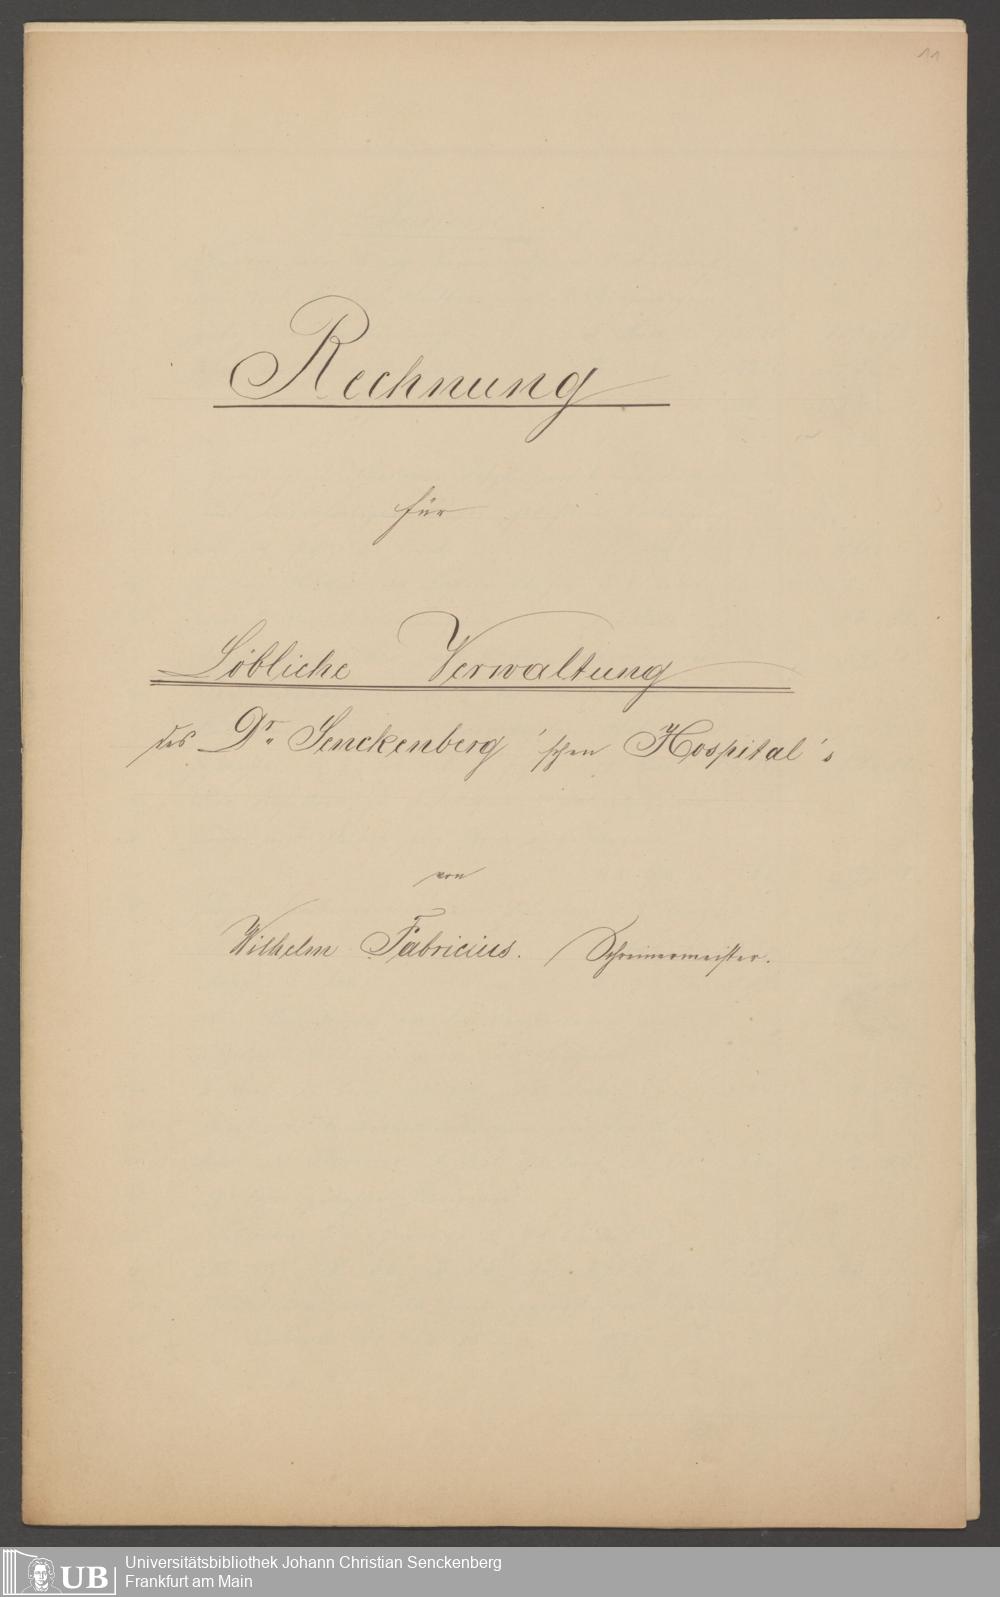 11
Rechnung
für
Löbliche Verwaltung
des Dr. Senckenberg'schen Hospital's
von
Wilhelm Fabricius. Schreinermeister.
UB
Universitätsbibliothek Johann Christian Senckenberg
Frankfurt am Main